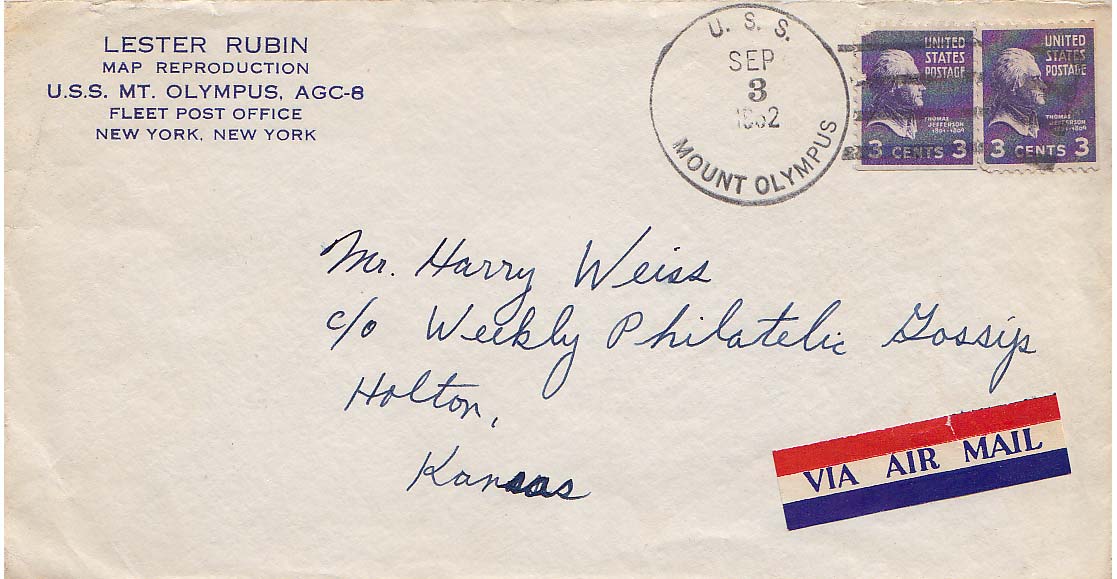 LESTER RUBIN
MAP REPRODUCTION
U.S.S. MT. OLYMPUS, AGC-8
FLEET POST OFFICE
NEW YORK, NEW YORK
U. S. S.
SEP
3
1952
MOUNT OLYMPUS
UNITED
STATES
POSTAGE
THOMAS
JEFFERSON
1801-1809
3 CENTS 3
UNITED
STATES
POSTAGE
THOMAS
JEFFERSON
1801-1809
3 CENTS 3
Mr. Harry Weiss
c/o Weekly Philatelic Gossip
Holton,
Kansas
VIA AIR MAIL